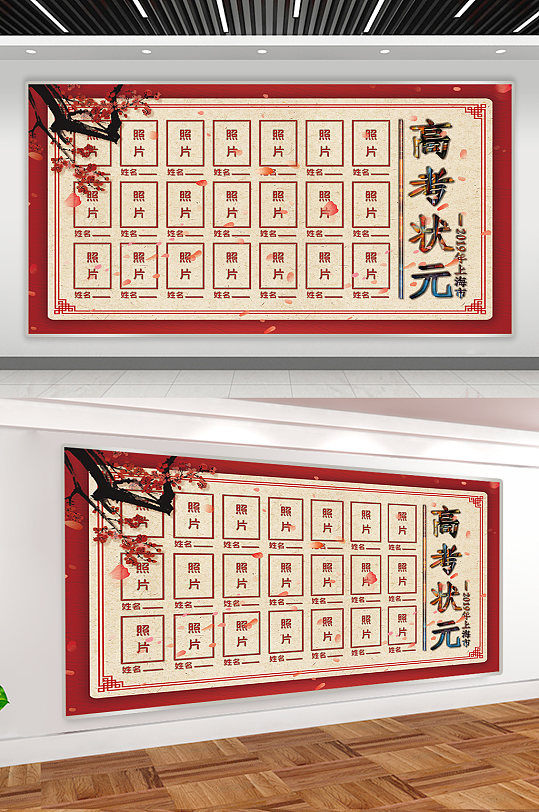 高考状元
—2019年上海市
照片 照片 照片 照片 照片 照片 照片
姓名 姓名 姓名 姓名 姓名 姓名
照片 照片 照片 照片 照片 照片 照片
姓名 姓名 姓名 姓名 姓名 姓名 姓名
照片 照片 照片 照片 照片 照片 照片
姓名 姓名 姓名 姓名 姓名 姓名 姓名
高考状元
—2019年上海市
照片 照片 照片 照片 照片 照片 照片
姓名 姓名 姓名 姓名 姓名 姓名
照片 照片 照片 照片 照片 照片 照片
姓名 姓名 姓名 姓名 姓名 姓名 姓名
照片 照片 照片 照片 照片 照片 照片
姓名 姓名 姓名 姓名 姓名 姓名 姓名